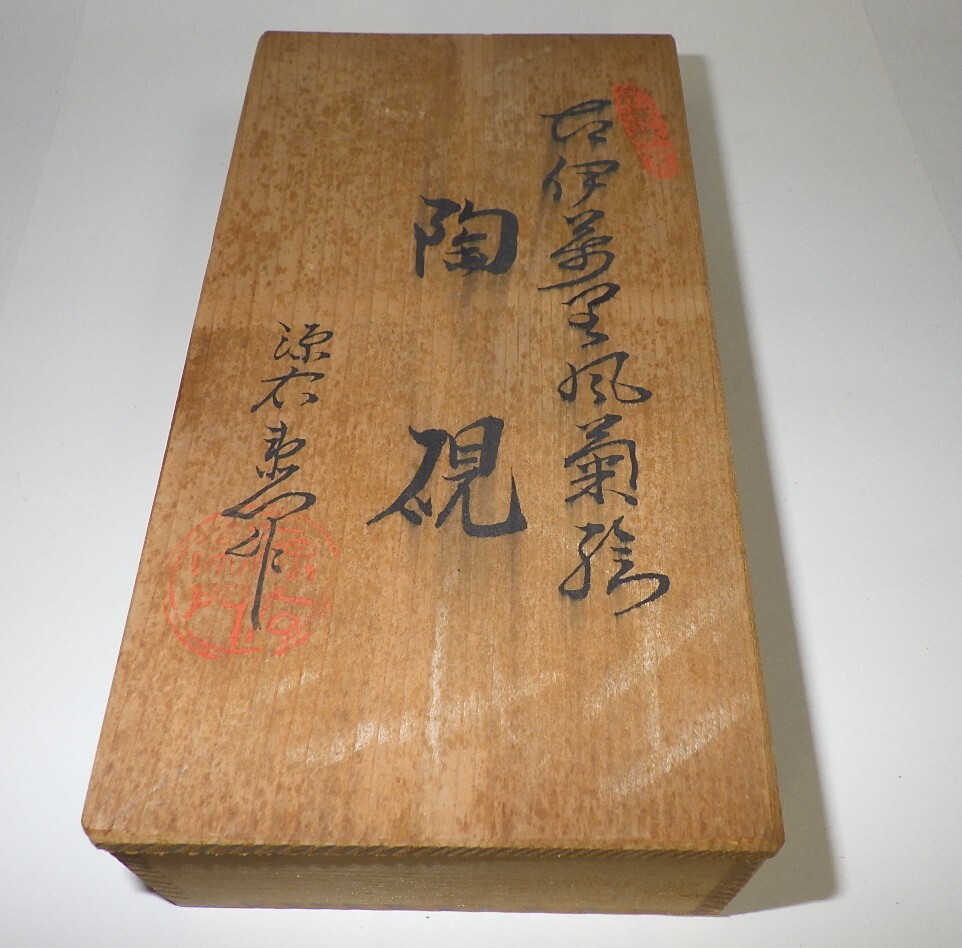 古伊萬里風菊繪
陶硯
源右衛門作